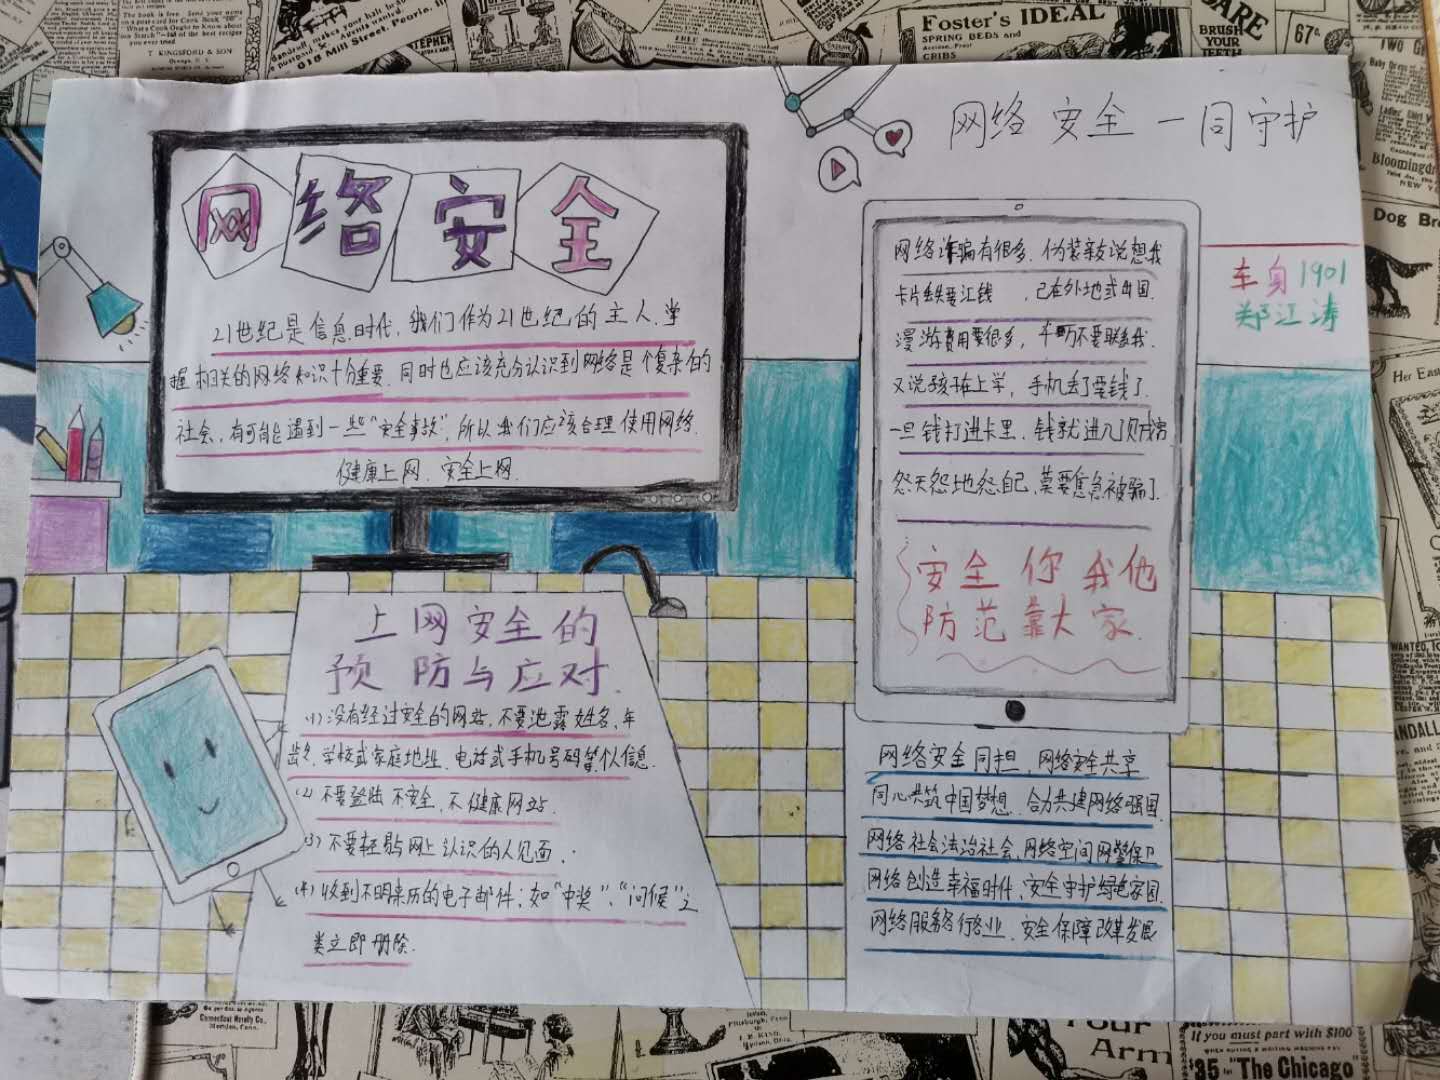 网络安全一同守护
网络安全
21世纪是信息时代，我们作为21世纪的主人.掌
握相关的网络知识十分重要.同时也应该充分认识到网络是个复杂的
社会，有可能遇到一些“安全事故”，所以我们应该合理使用网络.
健康上网.安全上网.
网络诈骗有很多.伪装亲友说想我
卡片丢失要汇钱，已在外地或出国.
漫游费用要很多，千万不要联系我.
又说孩子在上学，手机丢了要钱了.
一旦钱打进卡里.钱就进了贼
怨天怨地怨自己，莫要焦急被骗了.
安全你我他
防范靠大家.
车身1901
郑江涛
上网安全的
预防与应对.
(1)没有经过安全的网站，不要泄露姓名、年
龄、学校或家庭地址、电话或手机号码等个人信息.
(2)不要登陆不安全，不健康网站.
(3)不要轻易与网上认识的人见面.
(4)收到不明来历的电子邮件；如“中奖”、“问候”之
类立即删除.
网络安全同担，网络安全共享
同心共筑中国梦想.合力共建网络强国.
网络社会法治社会，网络空间网警保卫
网络创造幸福时代、安全守护绿色家园.
网络服务各行各业.安全保障改革发展
Foster's IDEAL
SPRING BEDS and
CRIBS
T. KINGSFORD & SON
BRUSH
YOUR
TEETH
67c.
Dog
Her
If you must part with $100
The Chicago